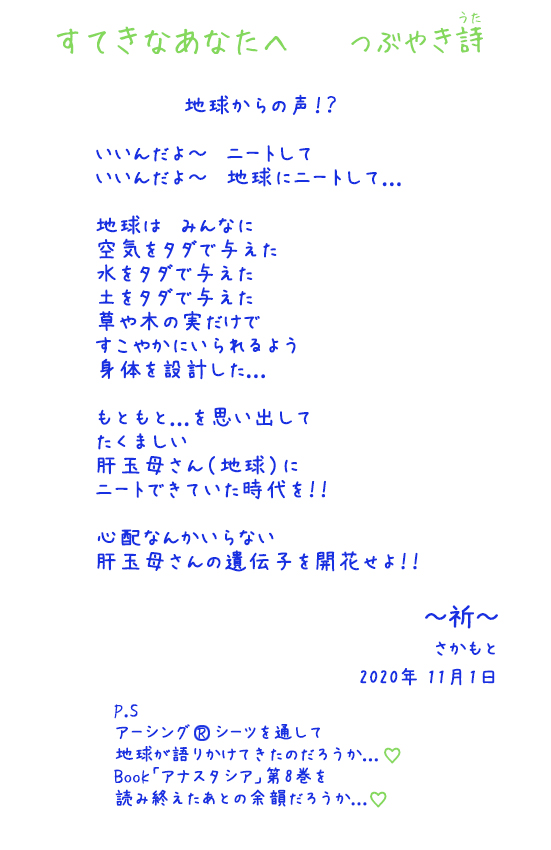 すてきなあなたへ　つぶやき詩
うた
地球からの声!?
いいんだよ〜　ニートして
いいんだよ〜　地球にニートして...
地球は　みんなに
空気をタダで与えた
水をタダで与えた
土をタダで与えた
草や木の実だけで
すこやかにいられるよう
身体を設計した...
もともと...を思い出して
たくましい
肝玉母さん(地球)に
ニートできていた時代を!!
心配なんかいらない
肝玉母さんの遺伝子を開花せよ!!
〜祈〜
さかもと
2020年 11月1日
P.S
アーシング®シーツを通して
地球が語りかけてきたのだろうか...♡
Book「アナスタシア」第8巻を
読み終えたあとの余韻だろうか...♡